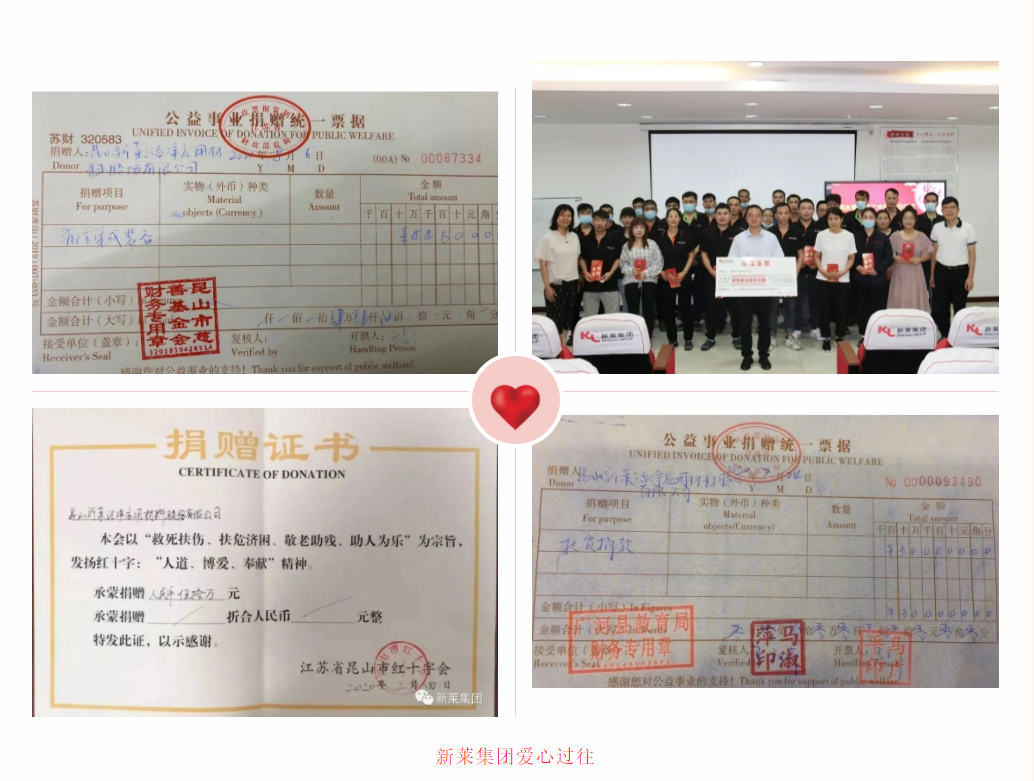 公益事业捐赠统一票据
UNIFIED INVOICE OF DONATION FOR PUBLIC WELFARE
苏财 320583
捐赠人:
Donor
年 月 6 日
Y M D
(00A) № 00087334
捐赠项目
For purpose
实物（外币）种类
Material
objects (Currency)
数量
Amount
金额
Total amount
千 百 十 万 千 百 十 元 角 分
金额合计（小写）
金额合计（大写）
昆山市慈
善基金会
财务专用章
接受单位（盖章）:
Receiver's Seal
复核人:
Verified by
开票人:
Handling Person
感谢您对公益事业的支持! Thank you for support of public welfare!
新莱集团
捐赠证书
CERTIFICATE OF DONATION
昆山新莱洁净应用材料股份有限公司
本会以“救死扶伤、扶危济困、敬老助残、助人为乐”为宗旨，
发扬红十字：“人道、博爱、奉献”精神。
承蒙捐赠 人民币伍拾万 元
承蒙捐赠 折合人民币 元整
特发此证，以示感谢。
江苏省昆山市红十字会
2020年二月 日
新莱集团
公益事业捐赠统一票据
UNIFIED INVOICE OF DONATION FOR PUBLIC WELFARE
捐赠人
Donor
年 月 日
Y M D
№ 0000093490
捐赠项目
For purpose
实物（外币）种类
Material
objects(Currency)
数量
Amount
金额
Total amount
千 百 十 万 千 百 十 元 角 分
扶贫捐款
¥30000000
金额合计（小写）In Figures
¥30000000
金额合计（大写）In Words
广河县教育局
财务专用章
接受单位（盖章）
Receiver's Seal
复核人
Verified
开票人:
Handling Person
感谢您对公益事业的支持! Thank you for support of public welfare!
新莱集团爱心过往